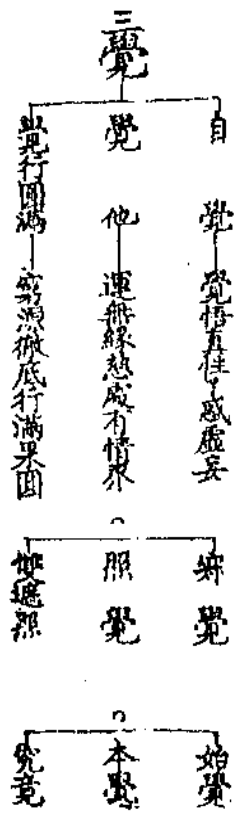 三覺
自覺—覺悟真性了惑虛妄
覺他—運無緣慈度有情界
覺行圓滿—窮源徹底行滿果圓
照覺
雙遮照
始覺
本覺
究竟